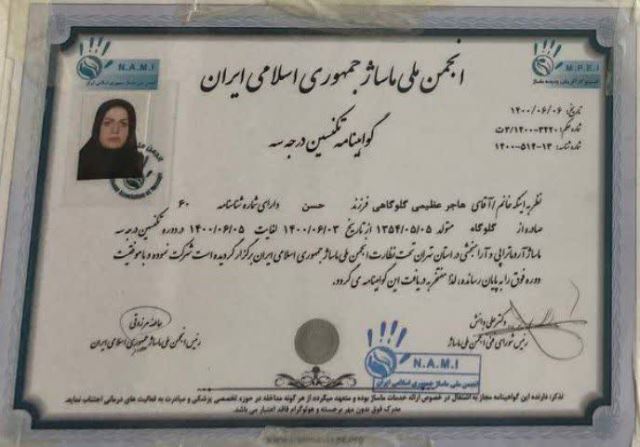 انجمن ملی ماساژ جمهوری اسلامی ایران
N.A.M.I
انجمن ملی ماساژ جمهوری اسلامی ایران
M.P.E.I
گواهینامه تکنسین درجه سه
تاریخ: ۱۴۰۰/۰۶/۰۶
شماره حکم: ۳۴۲۰-۲/۱۴۰۰ت
شماره شناسه: ۱۳-۵۱۴-۱۴۰۰
نظر به اینکه خانم / آقای هاجر عظیمی گلوگاهی فرزند حسن دارای شماره شناسنامه ۶۰
صادره از گلوگاه متولد ۱۳۵۴/۰۵/۰۵ از تاریخ ۱۴۰۰/۰۶/۰۳ لغایت ۱۴۰۰/۰۶/۰۵ در دوره تکنسین درجه سه
ماساژ آروماتراپی و آرامبخشی در استان تهران تحت نظارت انجمن ملی ماساژ جمهوری اسلامی ایران برگزار گردیده است شرکت نموده و با موفقیت
دوره فوق را به پایان رسانده، لذا مفتخر به دریافت این گواهینامه می گردد.
دکتر علی دانش
رئیس شورای ملی انجمن ملی ماساژ
رئیس انجمن ملی ماساژ جمهوری اسلامی ایران
N.A.M.I
انجمن ملی ماساژ جمهوری اسلامی ایران
تذکر: دارنده این گواهینامه مجاز به اشتغال در خصوص ارائه خدمات ماساژ بوده و متعهد میگردد از هر گونه مداخله در حوزه تخصصی پزشکی و مبادرت به فعالیت های درمانی اجتناب نماید.
مدرک فوق بدون مهر برجسته و هولوگرام فاقد اعتبار می باشد.